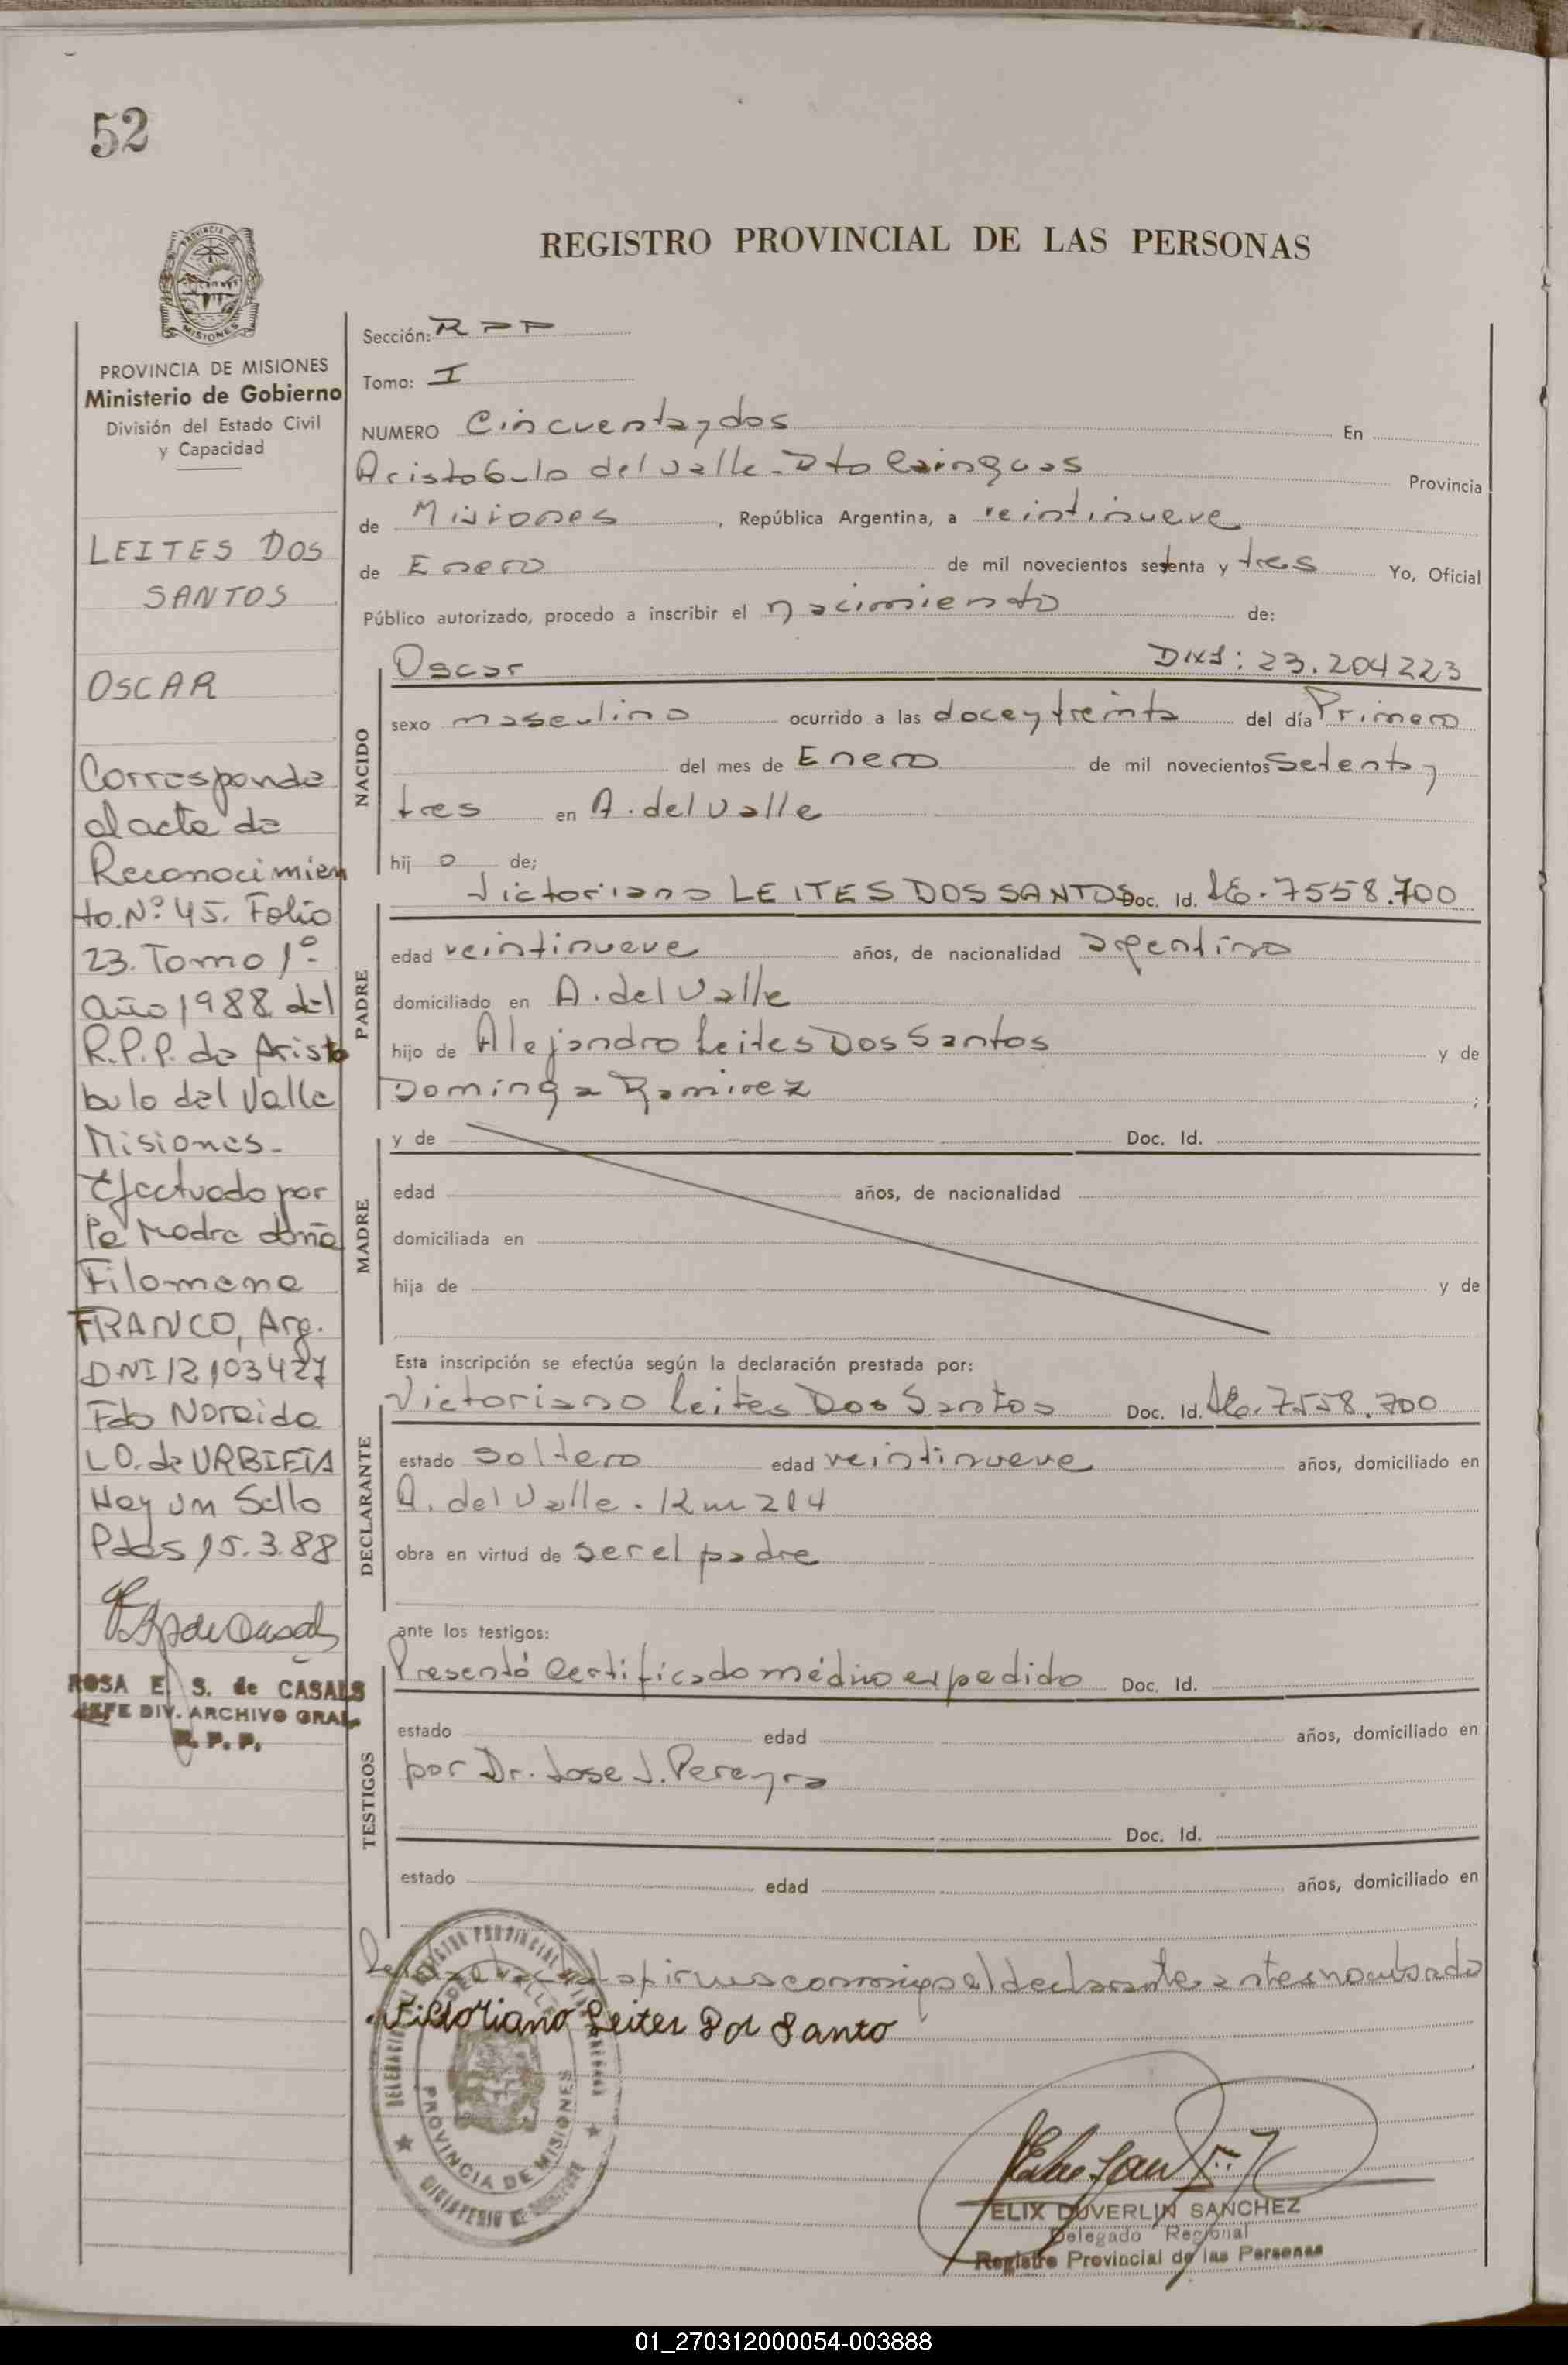 52
REGISTRO PROVINCIAL DE LAS PERSONAS
PROVINCIA
MISIONES
PROVINCIA DE MISIONES
Ministerio de Gobierno
División del Estado Civil
y Capacidad
LEITES DOS
SANTOS
OSCAR
Corresponde
al acta de
Reconocimien
to. Nº 45. Folio
23. Tomo 1º-
año 1988 del
R.P.P. de Aristo
bulo del Valle
Misiones-
Efectuado por
la Madre doña
Filomena
FRANCO, Arg.
DNI 12103427
Fdo Noreida
L.O. de URBIETA
Hay un Sello
Pdas 15.3.88
ROSA E. S. de CASALS
JEFE DIV. ARCHIVO GRAL.
R. P. P.
Sección: RPP
Tomo: I
NUMERO Cincuenta y dos En
Aristobulo del Valle - Dto Cainguas Provincia
de Misiones, República Argentina, a veintinueve
de Enero de mil novecientos setenta y tres Yo, Oficial
Público autorizado, procedo a inscribir el nacimiento de:
NACIDO
Oscar DNI: 23.204223
sexo masculino ocurrido a las doce y treinta del día Primero
del mes de Enero de mil novecientos Setenta y
tres en A. del Valle
hij o de;
PADRE
Victoriano LEITES DOS SANTOS Doc. Id. LE. 7558.700
edad veintinueve años, de nacionalidad argentina
domiciliado en A. del Valle
hijo de Alejandro Leites Dos Santos y de
Dominga Ramirez ;
MADRE
y de Doc. Id.
edad años, de nacionalidad
domiciliada en
hija de y de
Esta inscripción se efectúa según la declaración prestada por:
DECLARANTE
Victoriano Leites Dos Santos Doc. Id. LE. 7558.700
estado soltero edad veintinueve años, domiciliado en
A. del Valle. Km 204
obra en virtud de ser el padre
ante los testigos:
TESTIGOS
Presentó Certificado médico expedido Doc. Id.
estado edad años, domiciliado en
por Dr. Jose J. Pereyra
Doc. Id.
estado edad años, domiciliado en
firma conmigo el declarante antes nombrado
Victoriano Leites Dos Santo
PROVINCIA DE MISIONES
ELIX DUVERLIN SANCHEZ
Delegado Regional
Registro Provincial de las Personas
01_270312000054-003888